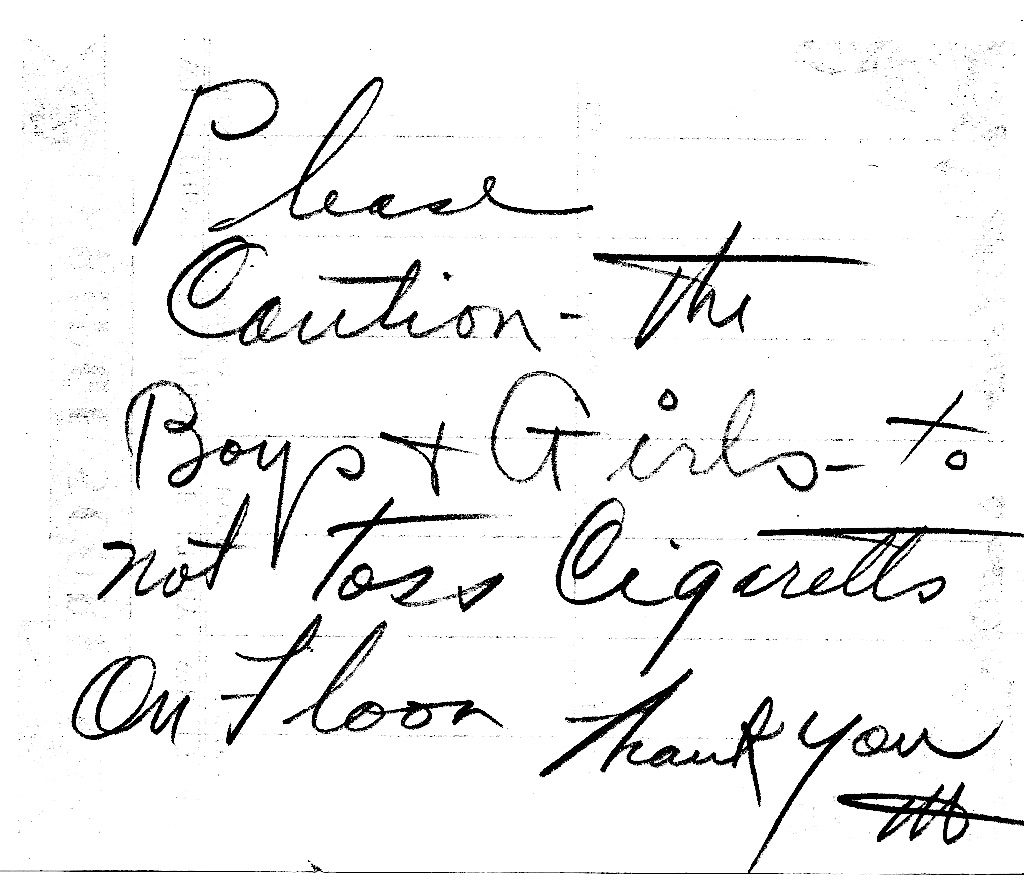 Please
Caution - The
Boys + Girls - to
not Toss Cigaretts
On Floor Thank You